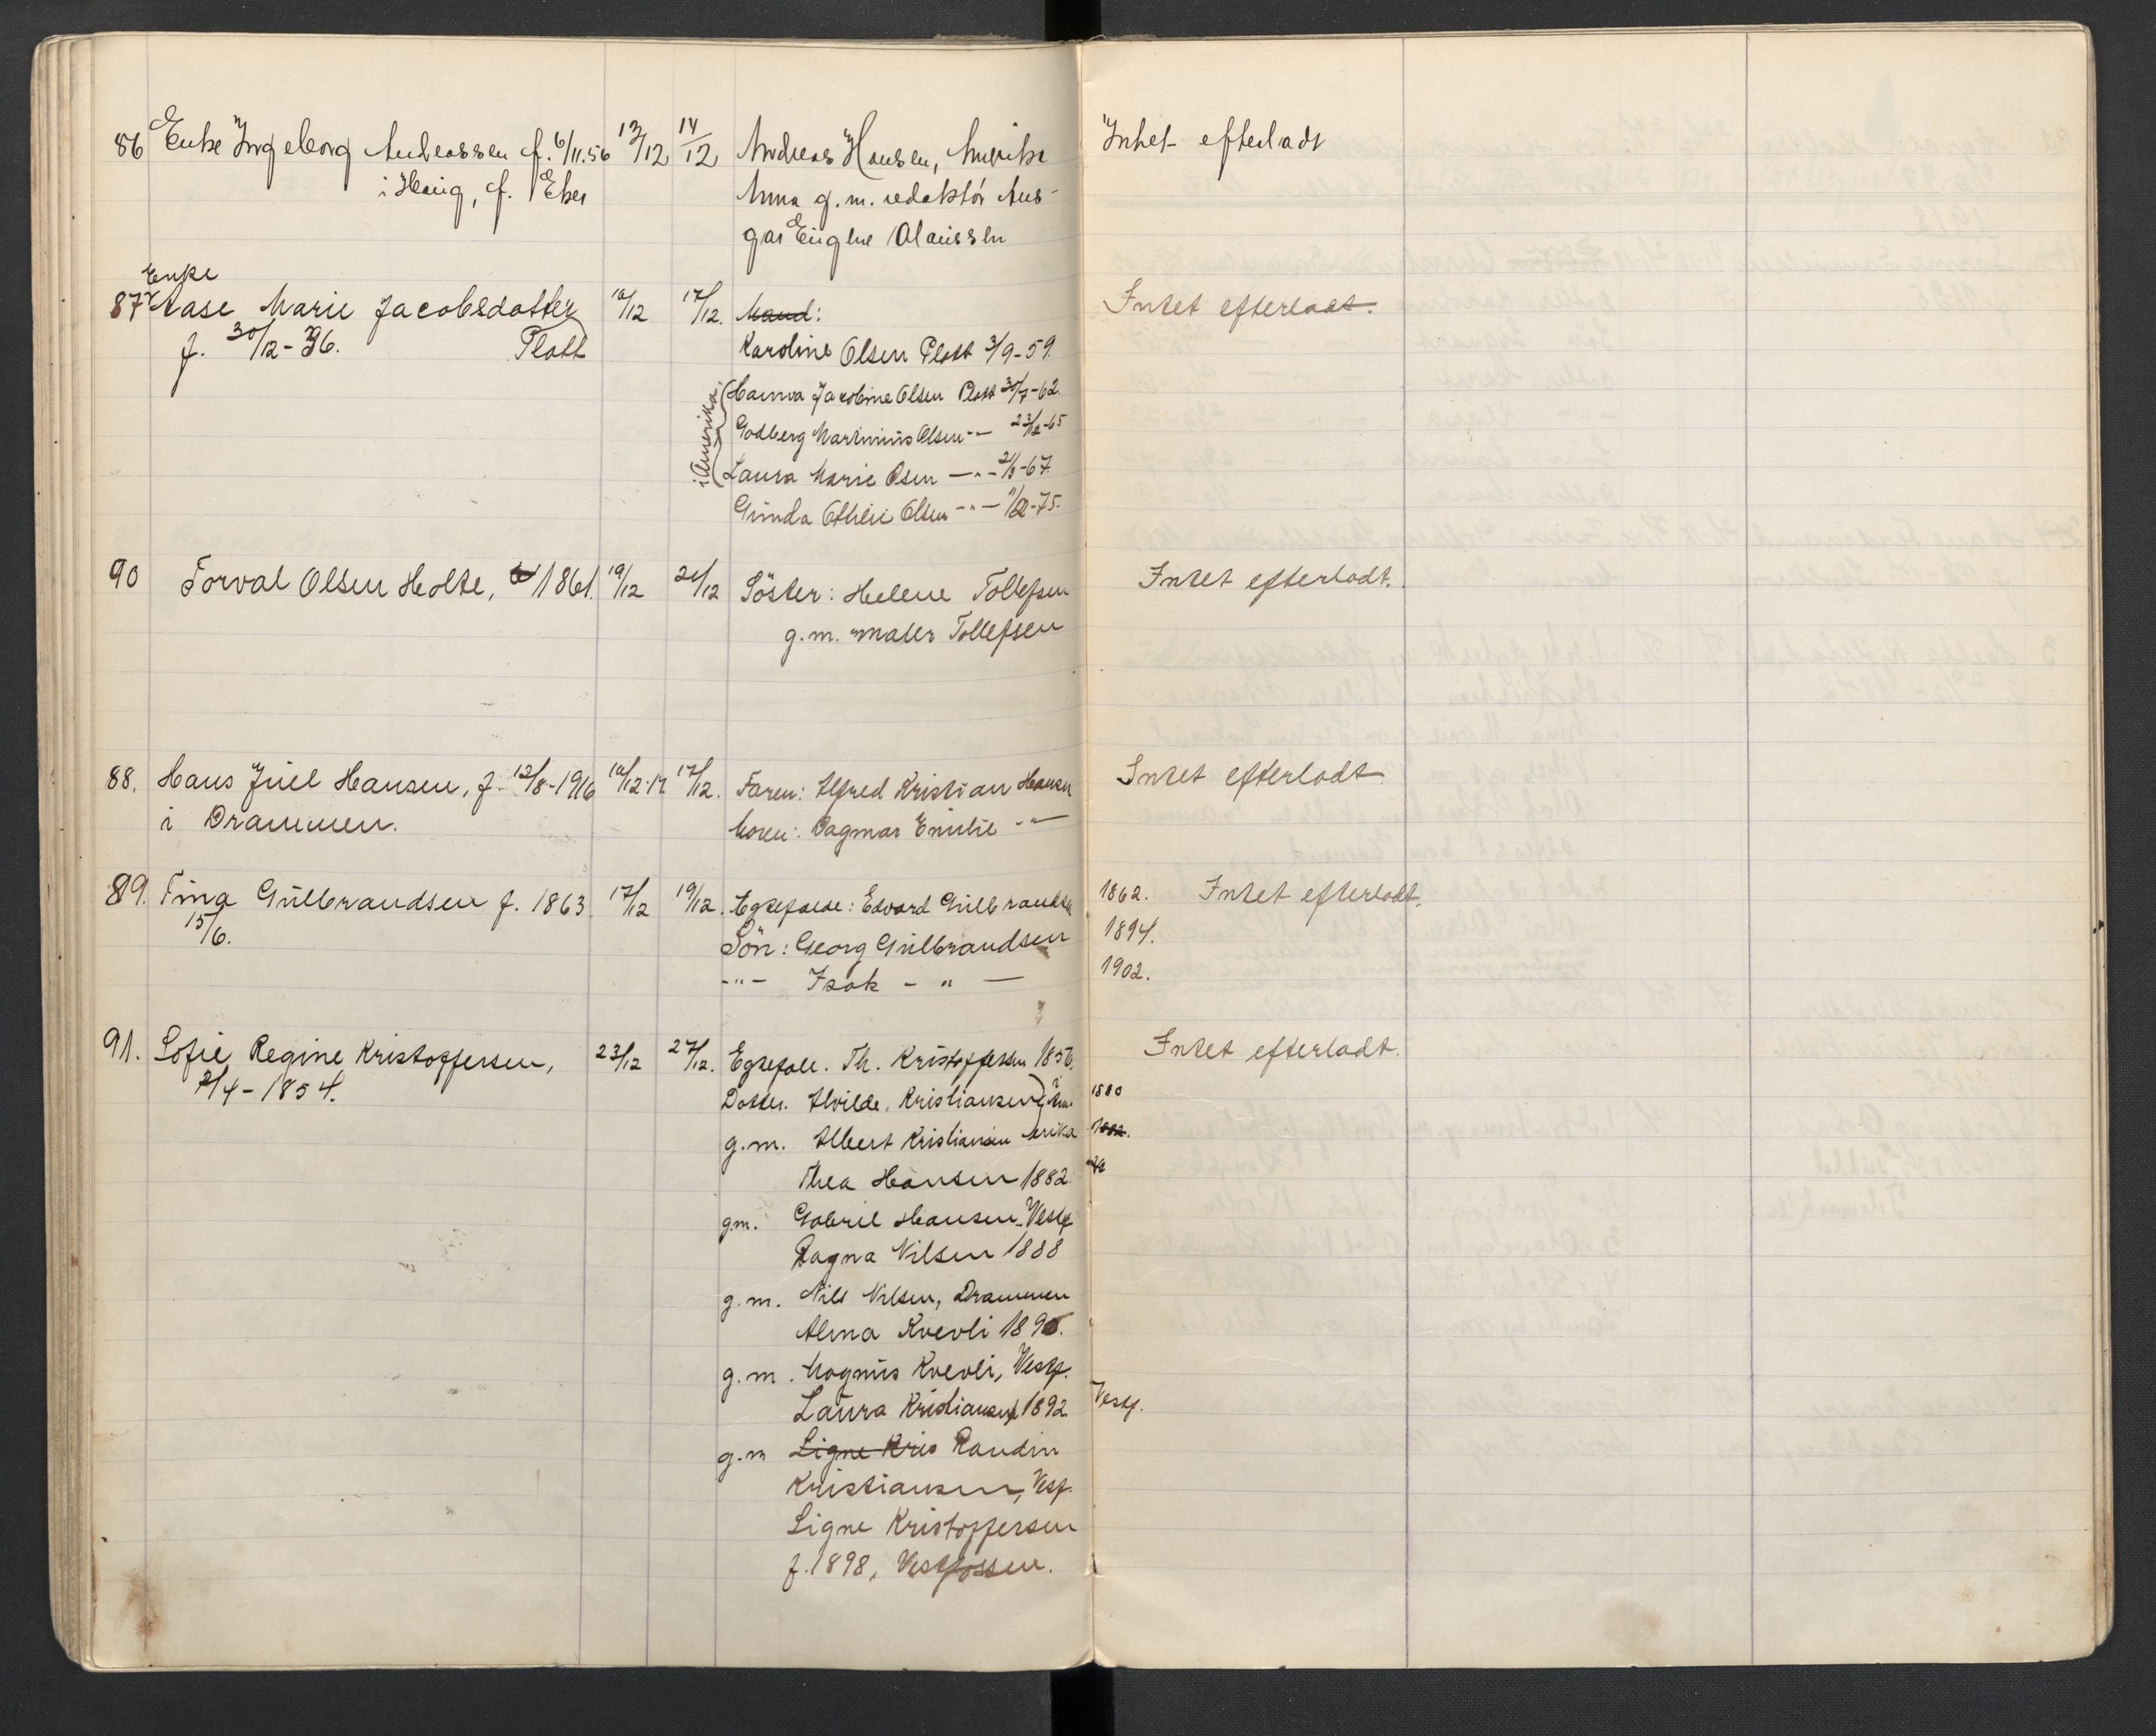 86 Enke Ingeborg Andreassen f. 6/11.56 12/12 14/12 Andreas Hansen, Amerika Intet efterladt
i Haug, f. Eker Anna g.m. redaktör Aus-
gar Eugene Olaussen
Enke
87 Aase Marie Jacobsdatter 16/12 17/12. Mand: Intet efterladt.
f. 30/12-36. Platt Karoline Olsen Platt 3/9-59.
i Amerika
Hanna Jacobine Olsen Platt 30/7-62.
Godberg Martinius Olsen -"- 23/12-65
Laura Marie Osen -"- 2/3-67.
Gunda Othlie Olsen -"- -75.
90 Torval Olsen Holte, 1861. 19/12 21/12 Söster: Helene Tollefsen Intet efterladt.
g.m. maler Tollefsen
88. Hans Juel Hansen, f. 12/8-1916 16/12.17 17/12. Faren: Alfred Kristian Hansen Intet efterladt
i Drammen. Moren: Dagmar Emilie -"-
89. Tina Gulbrandsen f. 1863. 17/12 19/12. Egtefælle: Edvard Gulbrandsen 1862. Intet efterladt.
15/6. Sön: Georg Gulbrandsen 1894.
-"- Isak -"- 1902.
91. Sofie Regine Kristoffersen, 23/12 27/12. Egtefæll. Th. Kristoffersen 1856. Intet efterladt.
2/4-1854. Datter. Alvilde. Kristiansen i Am- 1880
g.m. Albert Kristiansen erika 1882.
Thea Hansen 1882
g.m. Gabriel Hansen. Vestf.
Ragna Nilsen 1888
g.m. Nils Nilsen, Drammen
Alma Kvevli 1890.
g.m. Magnus Kvevli, Vestf.
Laura Kristiansen 1892 Vestf.
g.m Signe Kris Randin
Kristiansen, Vesf.
Signe Kristoffersen
f. 1898, Vestfossen.